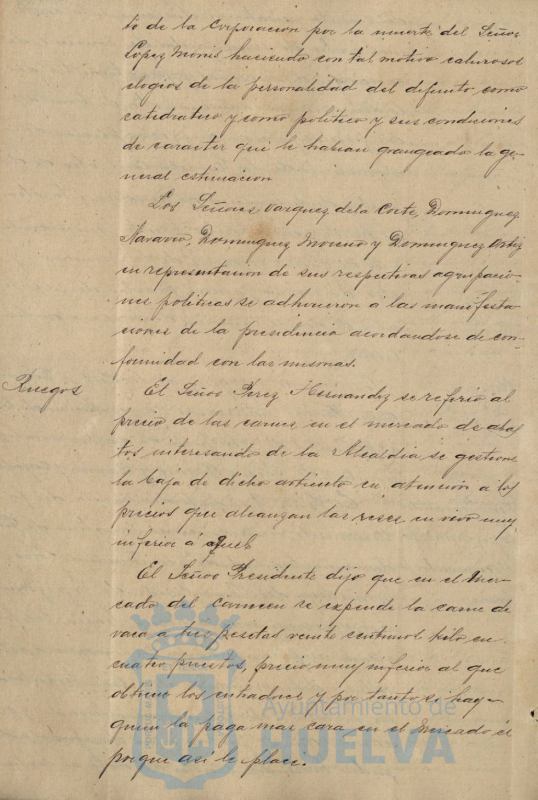 to de la corporacion por la muerte del Señor
Lopez Monis haciendo con tal motivo calurosos
elogios de la personalidad del difunto, como
catedratico y como politico y sus condiciones
de caracter que le habian grangeado la ge-
neral estimacion
Los Señores Vazquez de la Corte, Dominguez
Navarro, Dominguez Moreno y Dominguez Ortiz
en representacion de sus respectivas agrupacio-
nes politicas se adhirieron á las manifesta
ciones de la presidencia acordandose de con-
formidad con las mismas.
Ruegos
El Señor Perez Hernandez se refirio al
precio de las carnes en el mercado de abas
tos interesando de la Alcaldia se gestione
la baja de dicho articulo en atención a los
precios que alcanzan las reses en vivo muy
inferior á aquel
El Señor Presidente dijo que en el Mer-
cado del Carmen se expende la carne de
vaca a tres pesetas veinte centimos kilo en
cuatro puestos, precio muy inferior al que
obtiene los entradores y por tanto si hay
quien la paga mas cara en el Mercado es
porque asi le place.
Ayuntamiento de
HUELVA